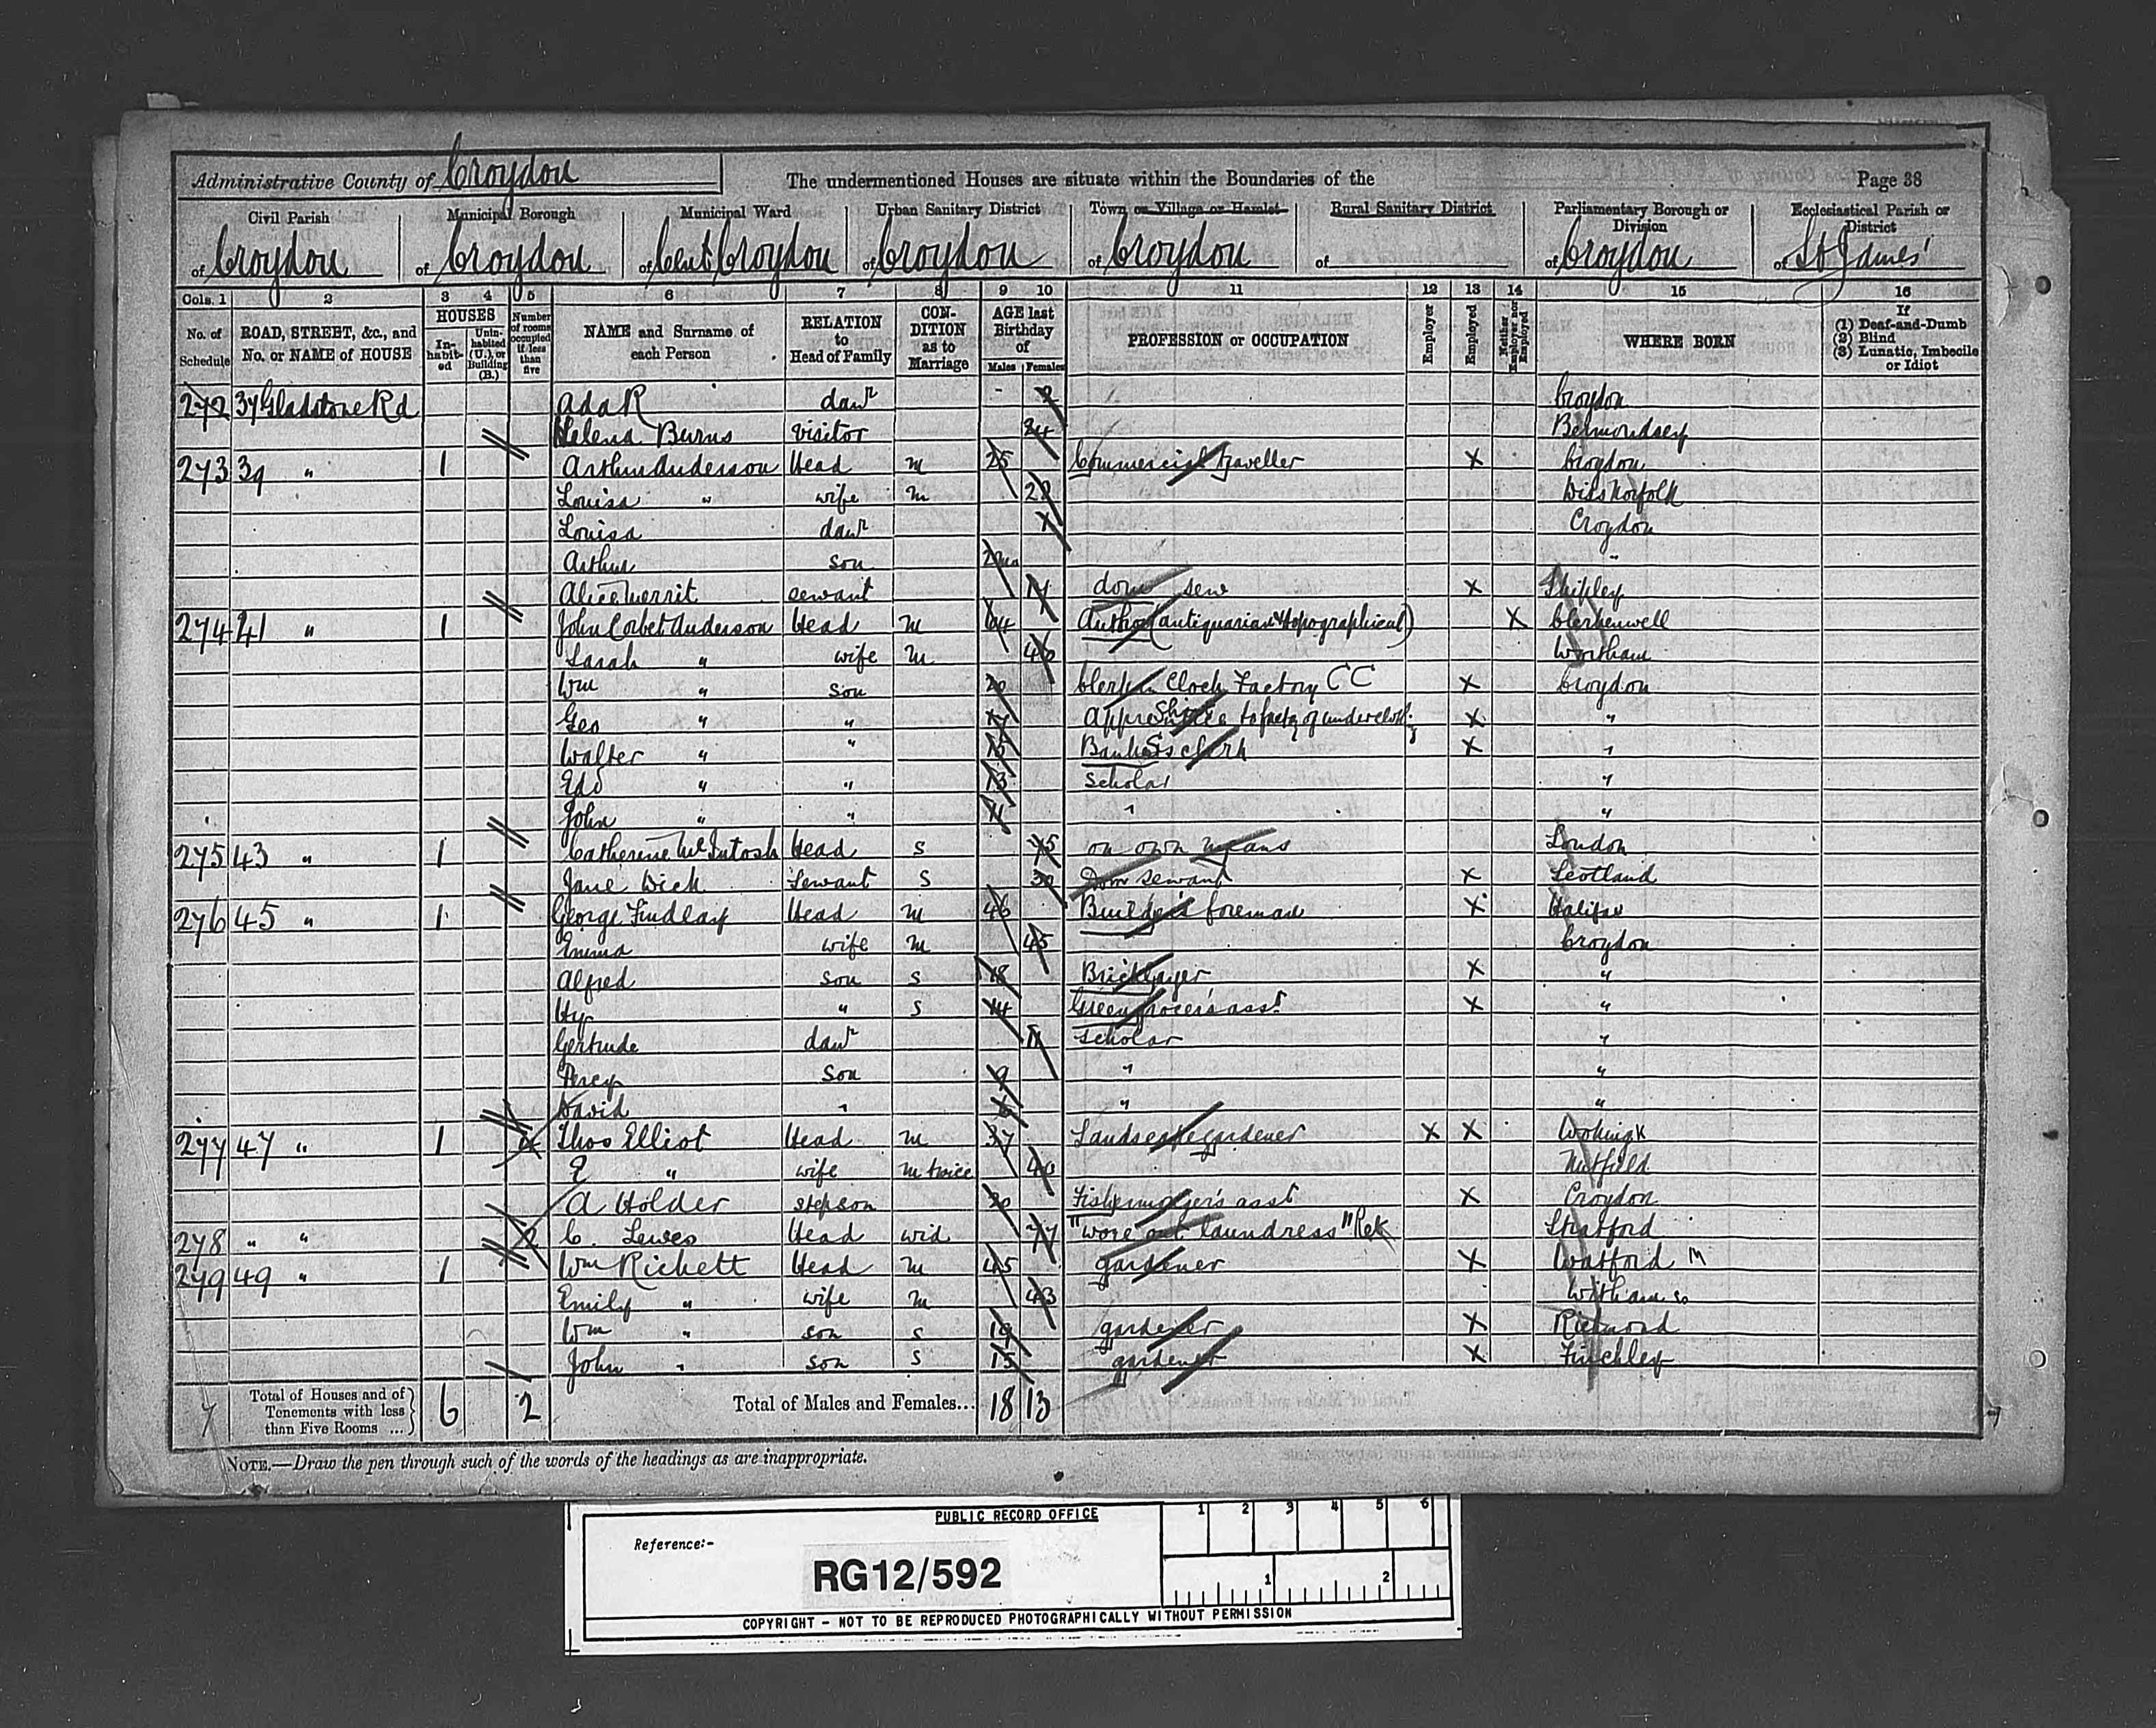 Administrative County of Croydon The undermentioned Houses are situate within the Boundaries of the Page 38
Civil Parish Municipal Borough Municipal Ward Urban Sanitary District Town or Village or Hamlet Rural Sanitary District Parliamentary Borough or Division Ecclesiastical Parish or District
of Croydon of Croydon of Cent Croydon of Croydon of Croydon of of Croydon of St James'
Cols. 1 2 3 4 5 6 7 8 9 10 11 12 13 14 15 16
No. of Schedule ROAD, STREET, &c., and No. or NAME of HOUSE HOUSES Inhabited Uninhabited (U.), or Building (B.) Number of rooms occupied if less than five NAME and Surname of each Person RELATION to Head of Family CONDITION as to Marriage AGE last Birthday of Males Females PROFESSION or OCCUPATION Employer Employed Neither Employer nor Employed WHERE BORN If (1) Deaf-and-Dumb (2) Blind (3) Lunatic, Imbecile or Idiot
272 37 Gladstone Rd Ada R daur - 2 Croydon
Helena Burns visitor 24 Bermondsey
273 39 " 1 Arthur Anderson Head m 25 Commercial traveller X Croydon
Louisa " wife m Diss Norfolk
Louisa daur Croydon
Arthur son "
Alice Merrit servant dom serv X Shipley
274 41 " 1 John Corbet Anderson Head m 64 Author (antiquarian & topographical) X Clerkenwell
Sarah " wife m 46 Wortham
Wm " son 20 Clerk in Clock Factory CC X Croydon
Geo " " 17 X "
Walter " " 15 Bankers clerk X "
Edd " " 13 scholar "
John " " " "
275 43 " 1 Catherine McIntosh Head S 75 on own means London
Jane Dick Servant S 30 Dom servant X Scotland
276 45 " 1 George Findlay Head m 46 Builder's foreman X Halifax
Emma wife m 45 Croydon
Alfred son S 18 Bricklayer X "
Hy " S 14 Greengrocers asst X "
Gertrude daur 11 scholar "
Percy son 9 " "
David " 6 " "
277 47 " 1 4 Thos Elliot Head m 37 Landscape gardener X X
E " wife m twice 40 Nutfield
A Holder stepson 20 Fishmonger's asst X Croydon
278 " " 2 C. Lewes Head wid 77 "wore out laundress" Stratford
279 49 " 1 Wm Rickett Head m 45 gardener X Watford
Emily " wife m 43 Witham
Wm " son S 19 gardener X Richmond
John " son S 15 gardener X Finchley
7 Total of Houses and of Tenements with less than Five Rooms ... 6 2 Total of Males and Females... 18 13
NOTE.—Draw the pen through such of the words of the headings as are inappropriate.
PUBLIC RECORD OFFICE 1 2 3 4 5 6
Reference:-
RG12/592 1 2
COPYRIGHT - NOT TO BE REPRODUCED PHOTOGRAPHICALLY WITHOUT PERMISSION